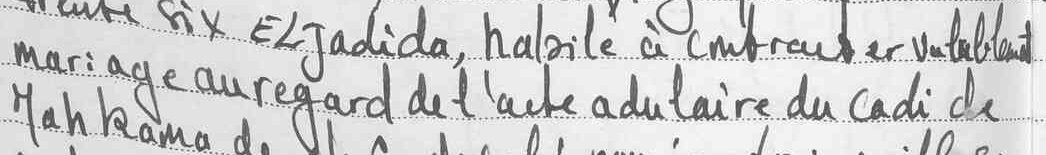 trente six EL Jadida, habile à contracter valablement
mariage au regard de l'acte adulaire du Cadi de
Mahkama de